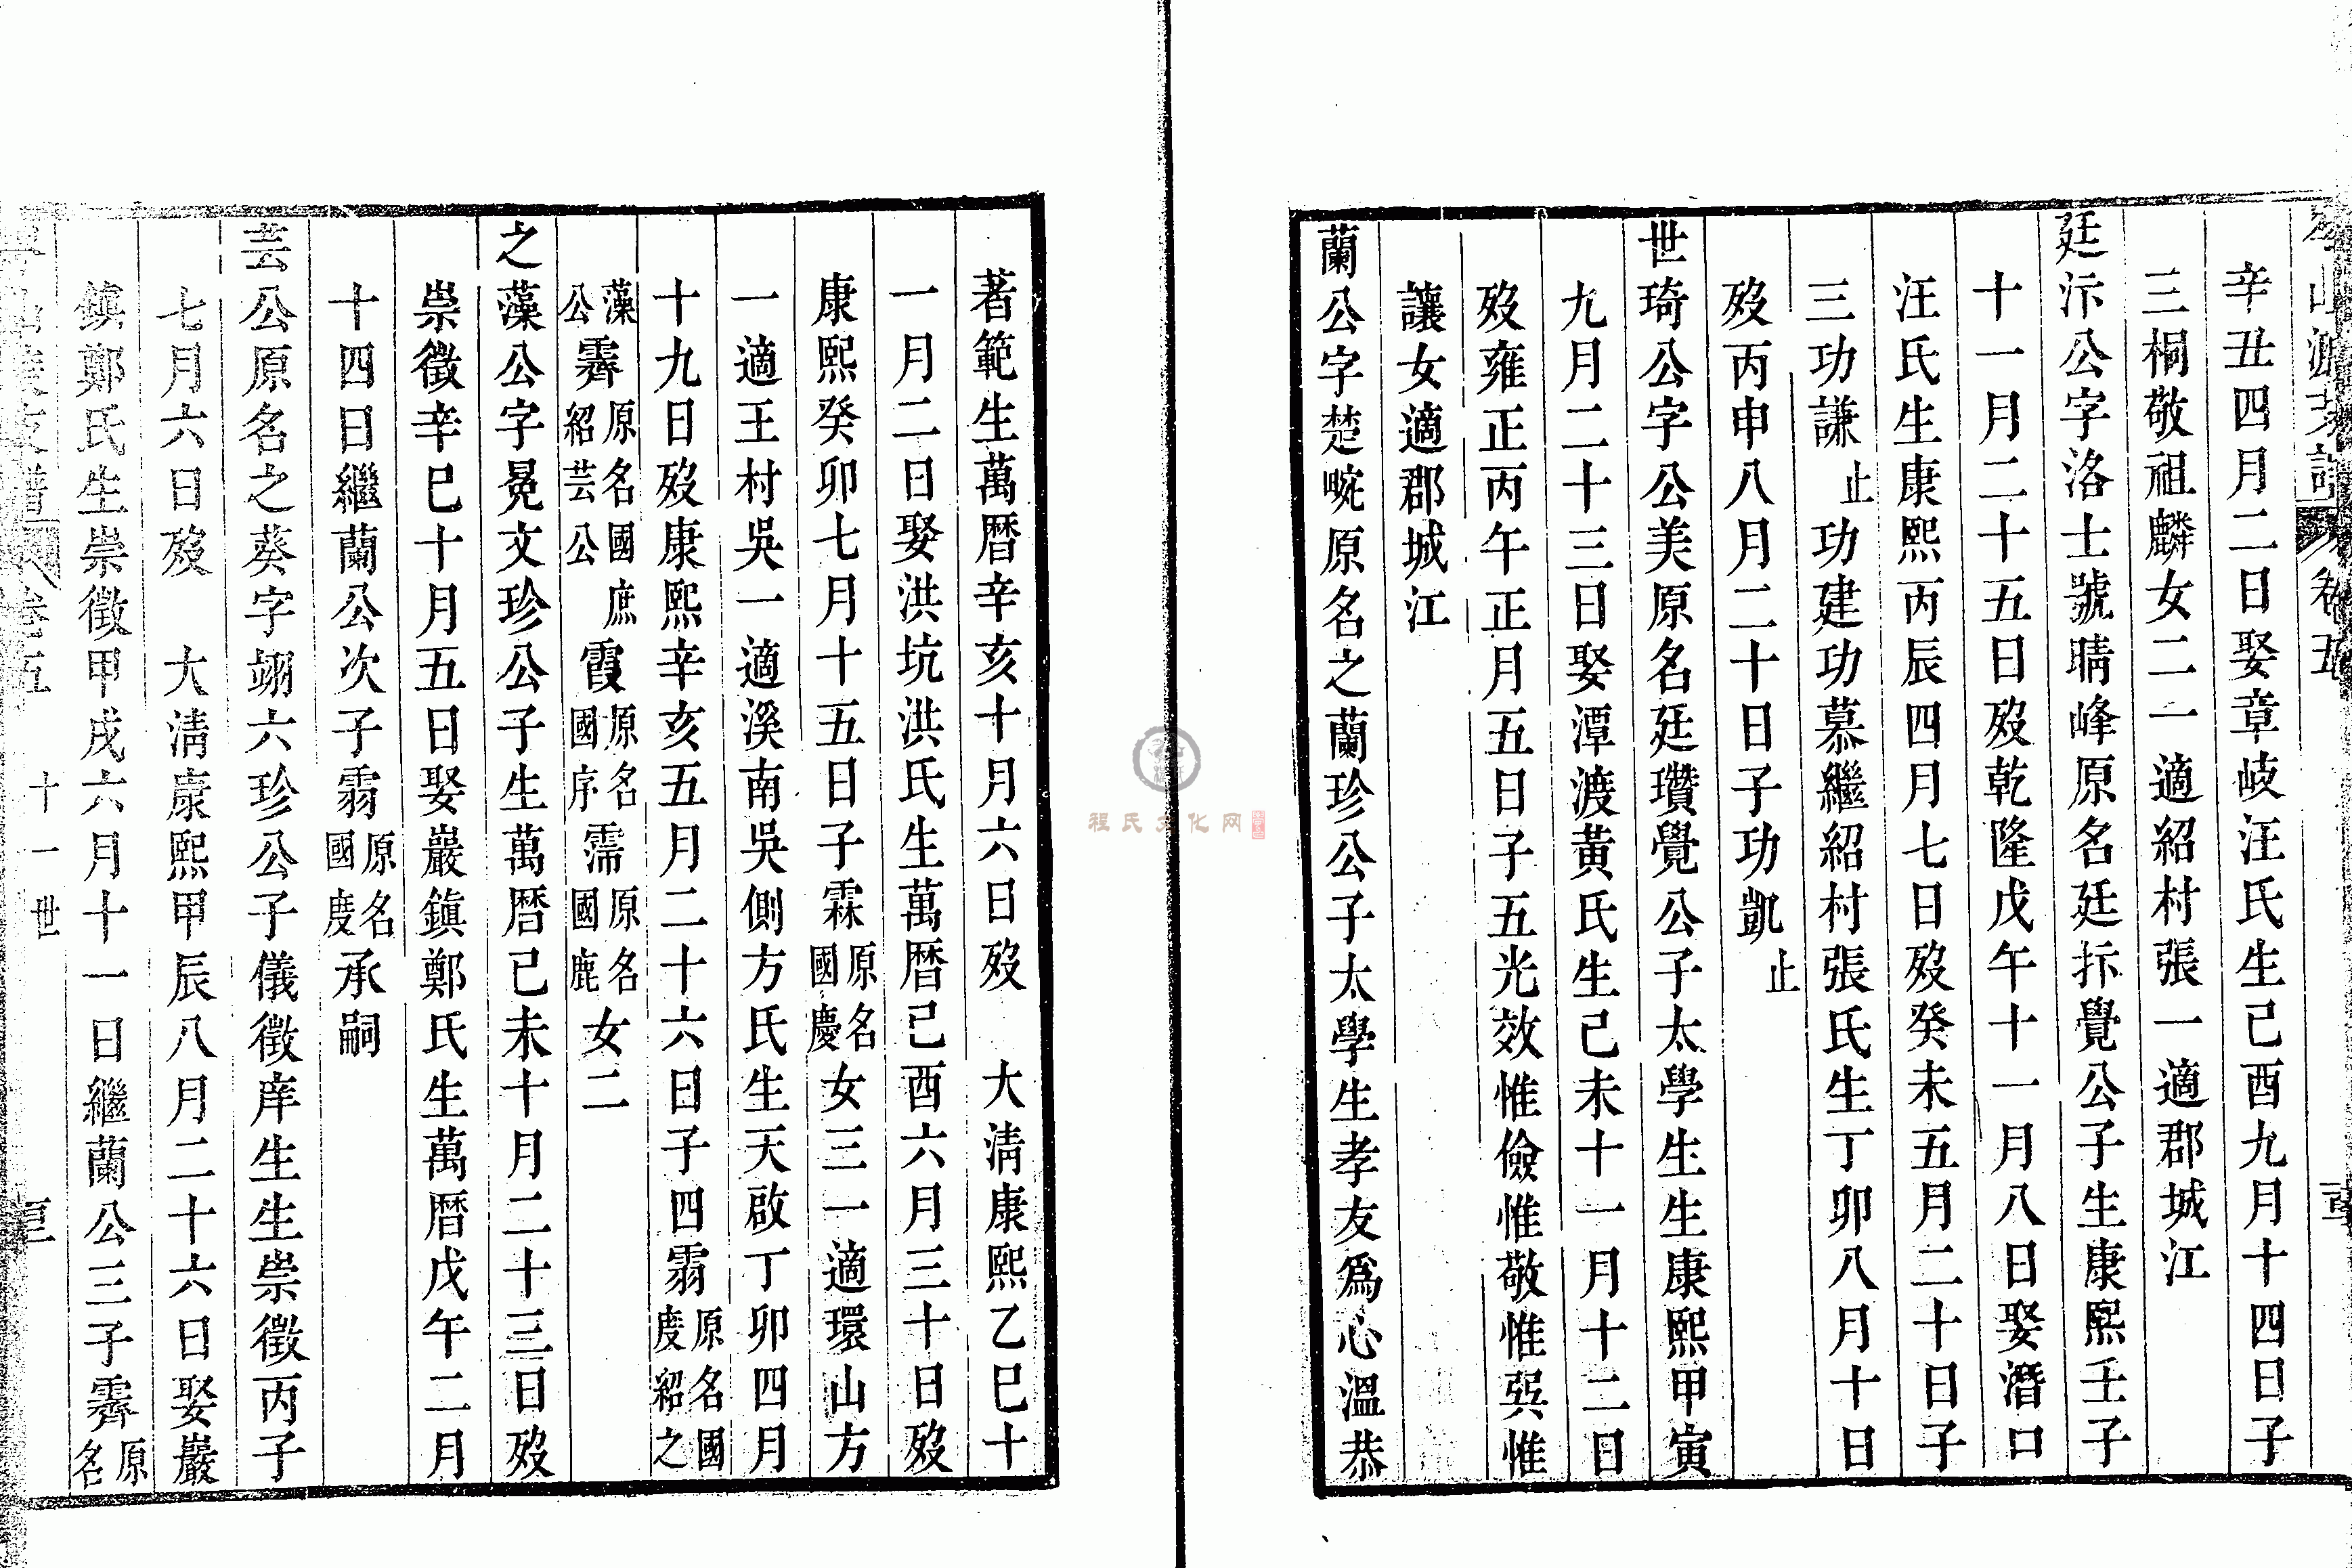 辛丑四月二日娶章岐汪氏生己酉九月十四日子
三桐敬祖麟女二一適紹村張一適郡城江
廷汴公字洛士號晴峰原名廷抃覺公子生康熙壬子
十一月二十五日歿乾隆戊午十一月八日娶潛口
汪氏生康熙丙辰四月七日歿癸未五月二十日子
三功謙止功建功慕繼紹村張氏生丁卯八月十日
歿丙申八月二十日子功凱止
世琦公字公美原名廷瓚覺公子太學生生康熙甲寅
九月二十三日娶潭渡黃氏生己未十一月十二日
歿雍正丙午正月五日子五光效惟儉惟敬惟㢲惟
讓女適郡城江
蘭公字楚畹原名之蘭珍公子太學生孝友爲心溫恭
著範生萬曆辛亥十月六日歿 大清康熙乙巳十
一月二日娶洪坑洪氏生萬曆己酉六月三十日歿
康熙癸卯七月十五日子霖原名國慶女三一適環山方
一適王村吳一適溪南吳側方氏生天啟丁卯四月
十九日歿康熙辛亥五月二十六日子四霱原名國度紹之
藻公霽原名國庶紹芸公霞原名國序霈原名國鹿女二
之藻公字晃文珍公子生萬曆己未十月二十三日歿
崇徵辛巳十月五日娶巖鎮鄭氏生萬曆戊午二月
十四日繼蘭公次子霱原名國度承嗣
芸公原名之葵字翊六珍公子儀徵庠生生崇徵丙子
七月六日歿 大清康熙甲辰八月二十六日娶巖
鎮鄭氏生崇徵甲戌六月十一日繼蘭公三子霽原名
卷五 十一世
程氏文化网